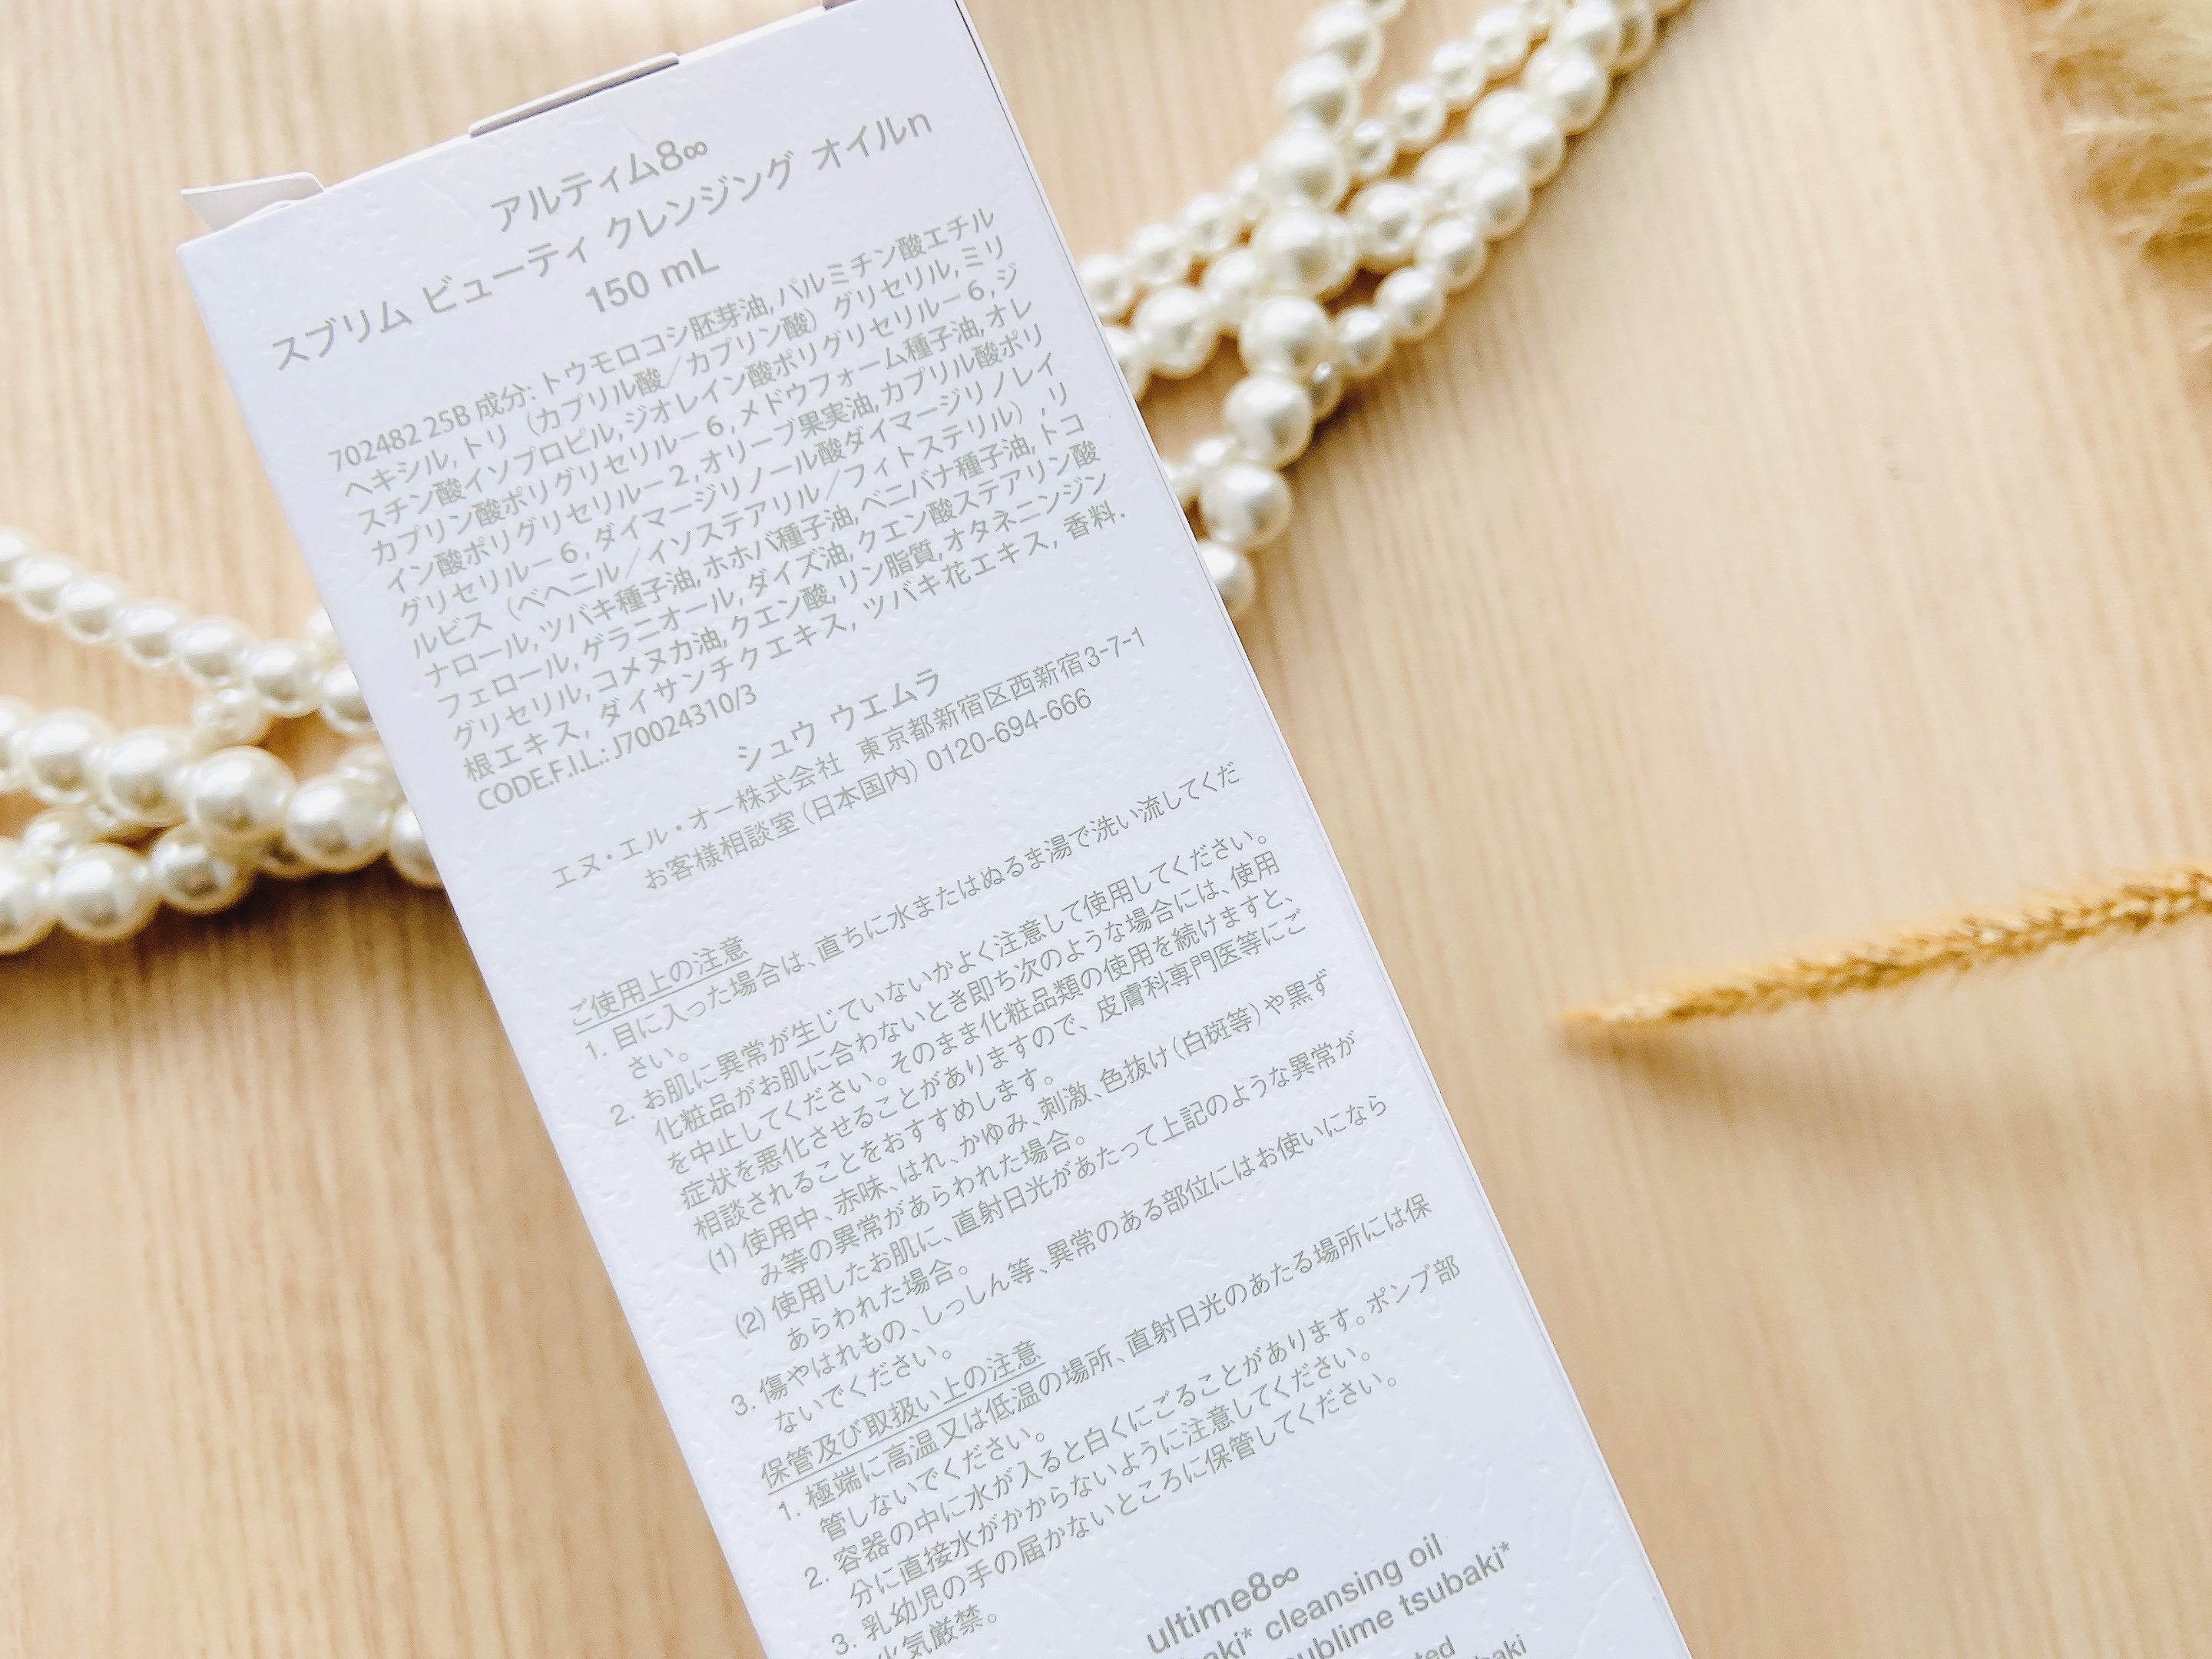 アルティム8∞
スブリム ビューティ クレンジング オイルn
150 mL
702482 25B 成分: トウモロコシ胚芽油, パルミチン酸エチル
ヘキシル, トリ（カプリル酸／カプリン酸）グリセリル, ミリ
スチン酸イソプロピル, ジオレイン酸ポリグリセリル－6, ジ
カプリン酸ポリグリセリル－6, メドウフォーム種子油, オレ
イン酸ポリグリセリル－2, オリーブ果実油, カプリル酸ポリ
グリセリル－6, ダイマージリノール酸ダイマージリノレイ
ルビス（ベヘニル／イソステアリル／フィトステリル）, リ
ナロール, ツバキ種子油, ホホバ種子油, ベニバナ種子油, トコ
フェロール, ゲラニオール, ダイズ油, クエン酸ステアリン酸
グリセリル, コメヌカ油, クエン酸, リン脂質, オタネニンジン
根エキス, ダイサンチクエキス, ツバキ花エキス, 香料.
CODE.F.I.L.: J70024310/3
シュウ ウエムラ
エヌ・エル・オー株式会社 東京都新宿区西新宿3-7-1
お客様相談室（日本国内）0120-694-666
ご使用上の注意
1. 目に入った場合は、直ちに水またはぬるま湯で洗い流してくだ
さい。
2. お肌に異常が生じていないかよく注意して使用してください。
化粧品がお肌に合わないとき即ち次のような場合には、使用
を中止してください。そのまま化粧品類の使用を続けますと、
症状を悪化させることがありますので、皮膚科専門医等にご
相談されることをおすすめします。
(1) 使用中、赤味、はれ、かゆみ、刺激、色抜け（白斑等）や黒ず
み等の異常があらわれた場合。
(2) 使用したお肌に、直射日光があたって上記のような異常が
あらわれた場合。
3. 傷やはれもの、しっしん等、異常のある部位にはお使いになら
ないでください。
保管及び取扱い上の注意
1. 極端に高温又は低温の場所、直射日光のあたる場所には保
管しないでください。
2. 容器の中に水が入ると白くにごることがあります。ポンプ部
分に直接水がかからないように注意してください。
3. 乳幼児の手の届かないところに保管してください。
火気厳禁。
ultime8∞
cleansing oil
sublime tsubaki*